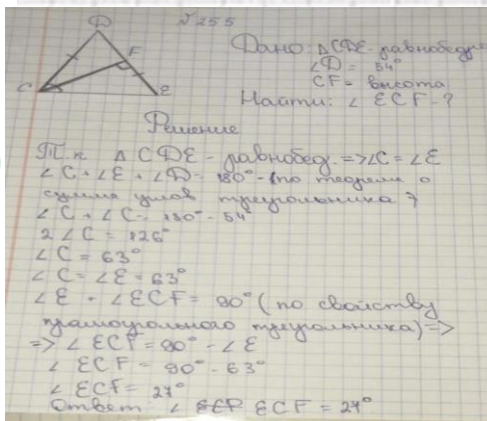 №255
D
F
C
E
Дано: △CDE - равнобедре
∠D = 54°
CF = высота
Найти: ∠ ECF - ?
Решение
Т.к △ CDE - равнобед. => ∠C = ∠E
∠C + ∠E + ∠D = 180° - (по теореме о
сумма углов треугольника)
∠C + ∠C = 180° - 54°
2 ∠C = 126°
∠C = 63°
∠C = ∠E = 63°
∠E + ∠ECF = 90° (по свойству
прямоугольного треугольника) =>
=> ∠ ECF = 90° - ∠E
∠ ECF = 90° - 63°
∠ ECF = 27°
Ответ: ∠ ECF = 27°